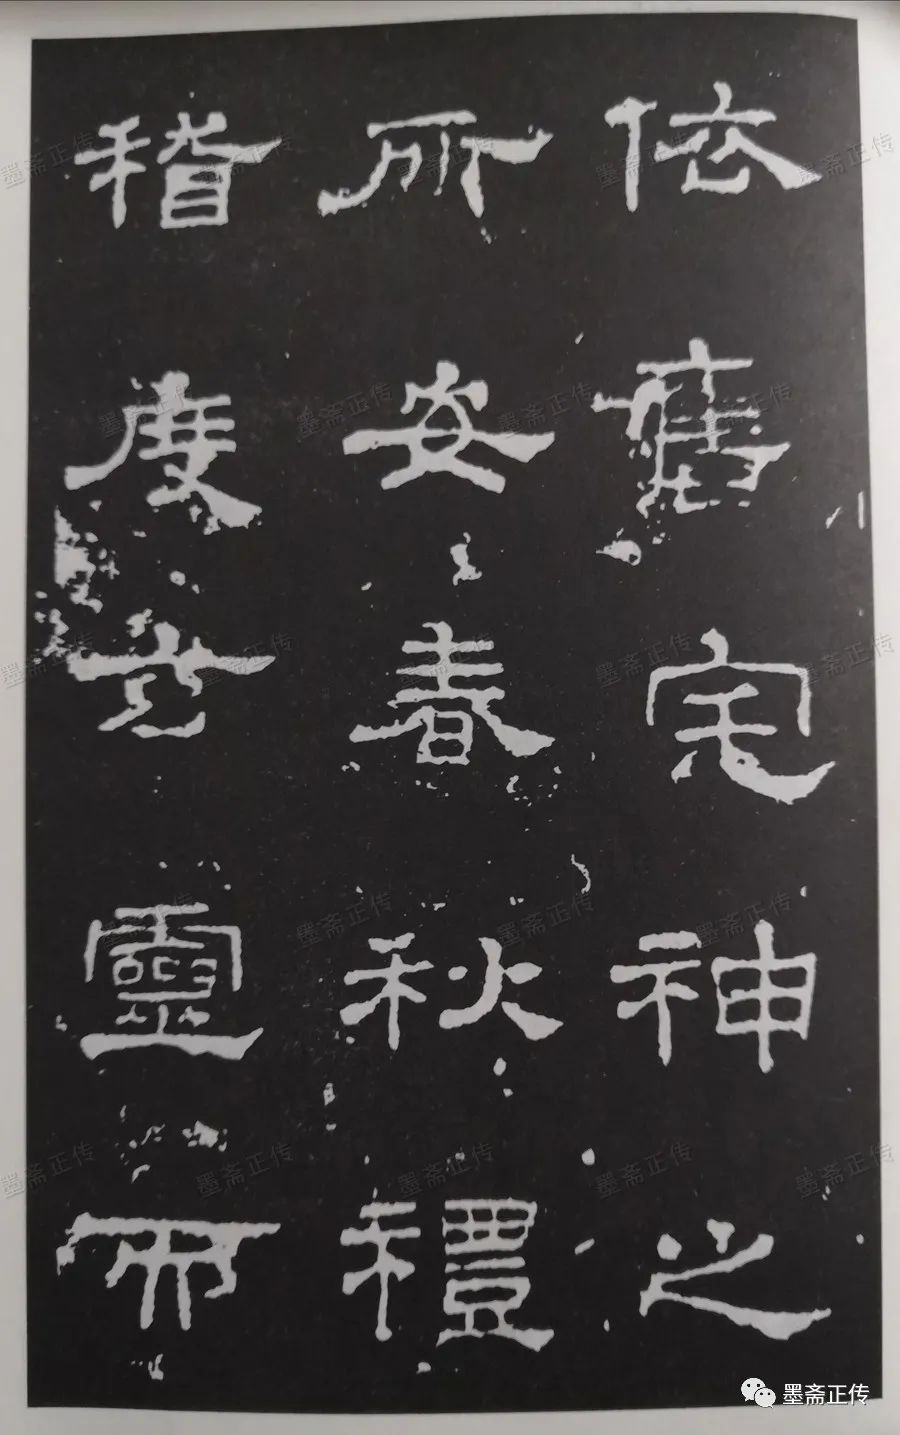 依舊宅神之
所安春秋禮
稽度玄靈而
墨斋正传